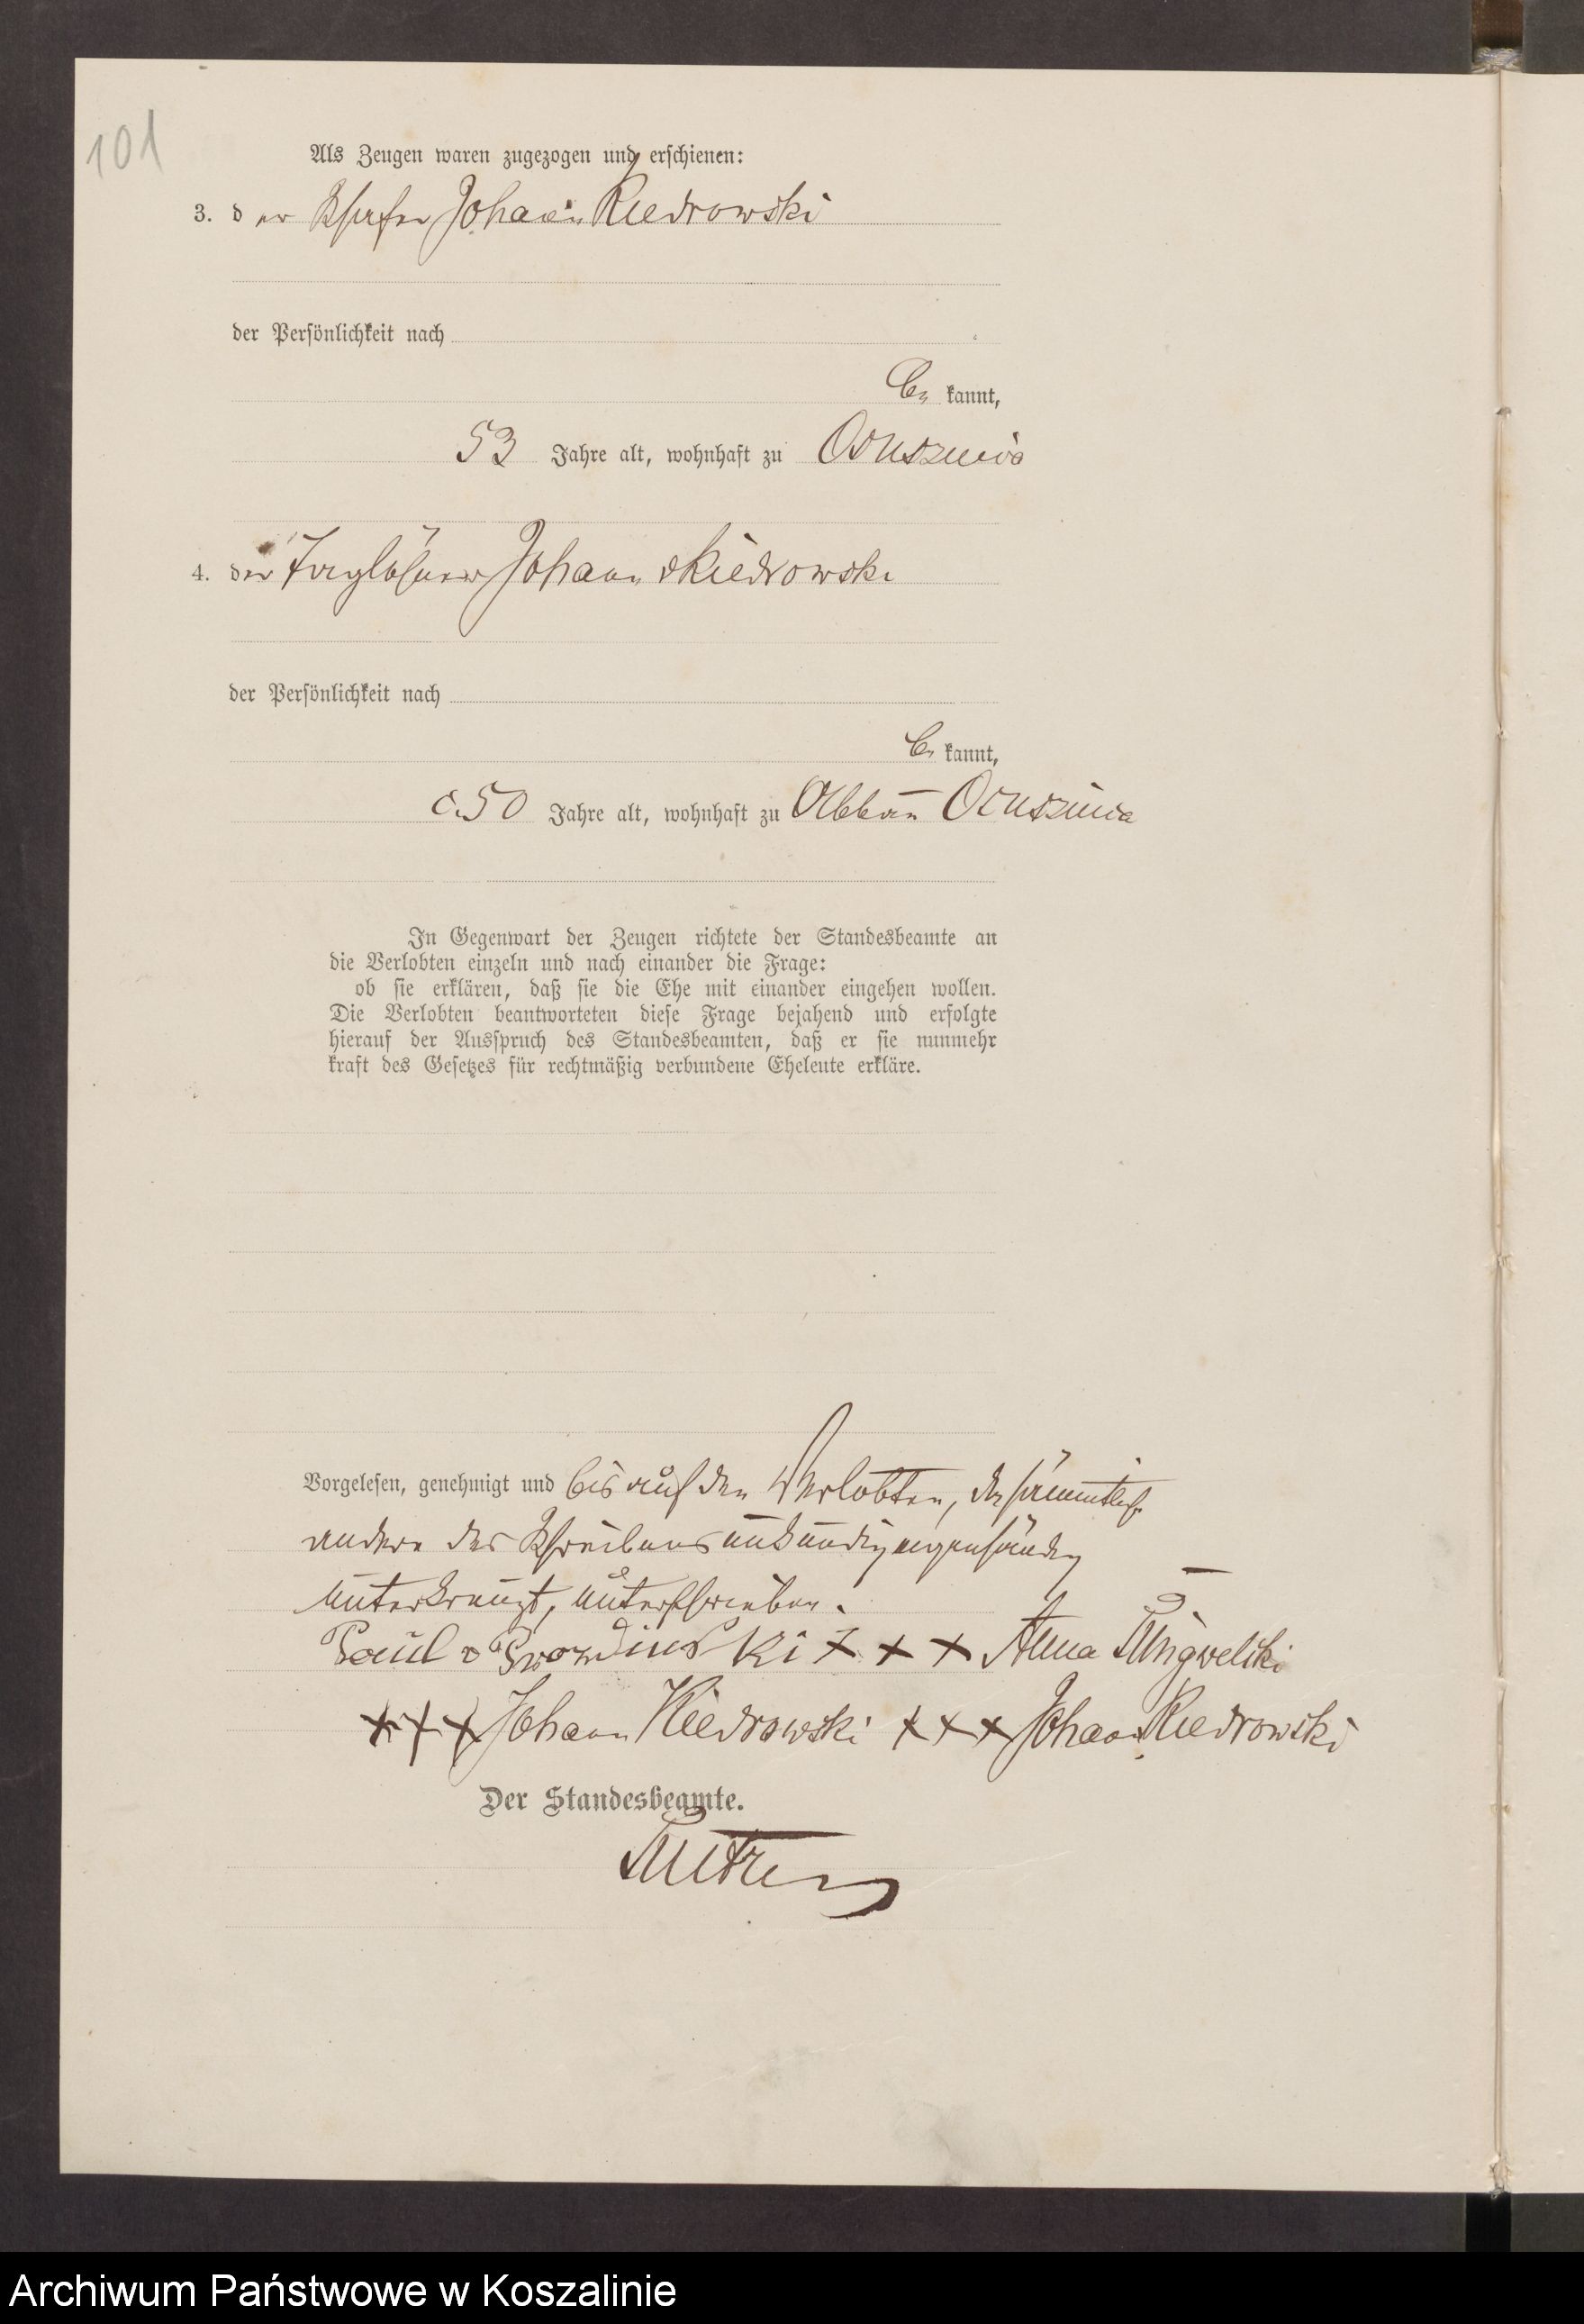 101
Als Zeugen waren zugezogen und erschienen:
3. der Schäfer Johann Kiedrowski
der Persönlichkeit nach
be kannt,
53 Jahre alt, wohnhaft zu Ossusznica
4. der Taglöhner Johann Kiedrowski
der Persönlichkeit nach
be kannt,
c. 50 Jahre alt, wohnhaft zu Abbau Ossusznica
In Gegenwart der Zeugen richtete der Standesbeamte an
die Verlobten einzeln und nach einander die Frage:
ob sie erklären, daß sie die Ehe mit einander eingehen wollen.
Die Verlobten beantworteten diese Frage bejahend und erfolgte
hierauf der Ausspruch des Standesbeamten, daß er sie nunmehr
kraft des Gesetzes für rechtmäßig verbundene Eheleute erkläre.
Vorgelesen, genehmigt und bis auf den Verlobten, da sämmtlich
andere des Schreibens unkundig eigenhändig
unterkreuzt, unterschrieben.
Paul v XXX Anna
XXX Johann Kiedrowski XXX Johann Kiedrowski
Der Standesbeamte.
Archiwum Państwowe w Koszalinie